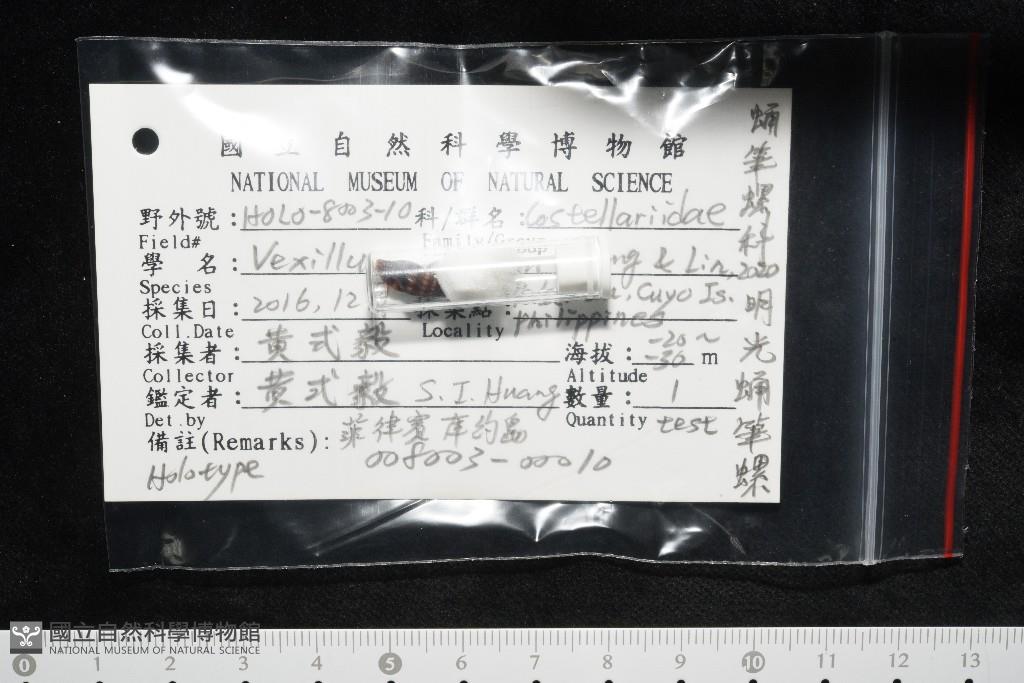 國立自然科學博物館
NATIONAL MUSEUM OF NATURAL SCIENCE
野外號：HOLO-8003-10 科/群名：Costellariidae
Field# Family/Group
學 名：Vexillu & Lin, 2020
Species
採集日：2016, 12 採集點：, Cuyo Is.
Coll.Date Locality philippines
採集者：黄式毅 海拔：-20~-30 m
Collector Altitude
鑑定者：黄式毅 S. I. Huang 數量：1
Det.by Quantity test
備註(Remarks)：菲律賓 庫約島
Holotype 008003-00010
蛹筆螺科
明光蛹筆螺
國立自然科學博物館
NATIONAL MUSEUM OF NATURAL SCIENCE
0 1 2 3 4 5 6 7 8 9 10 11 12 13